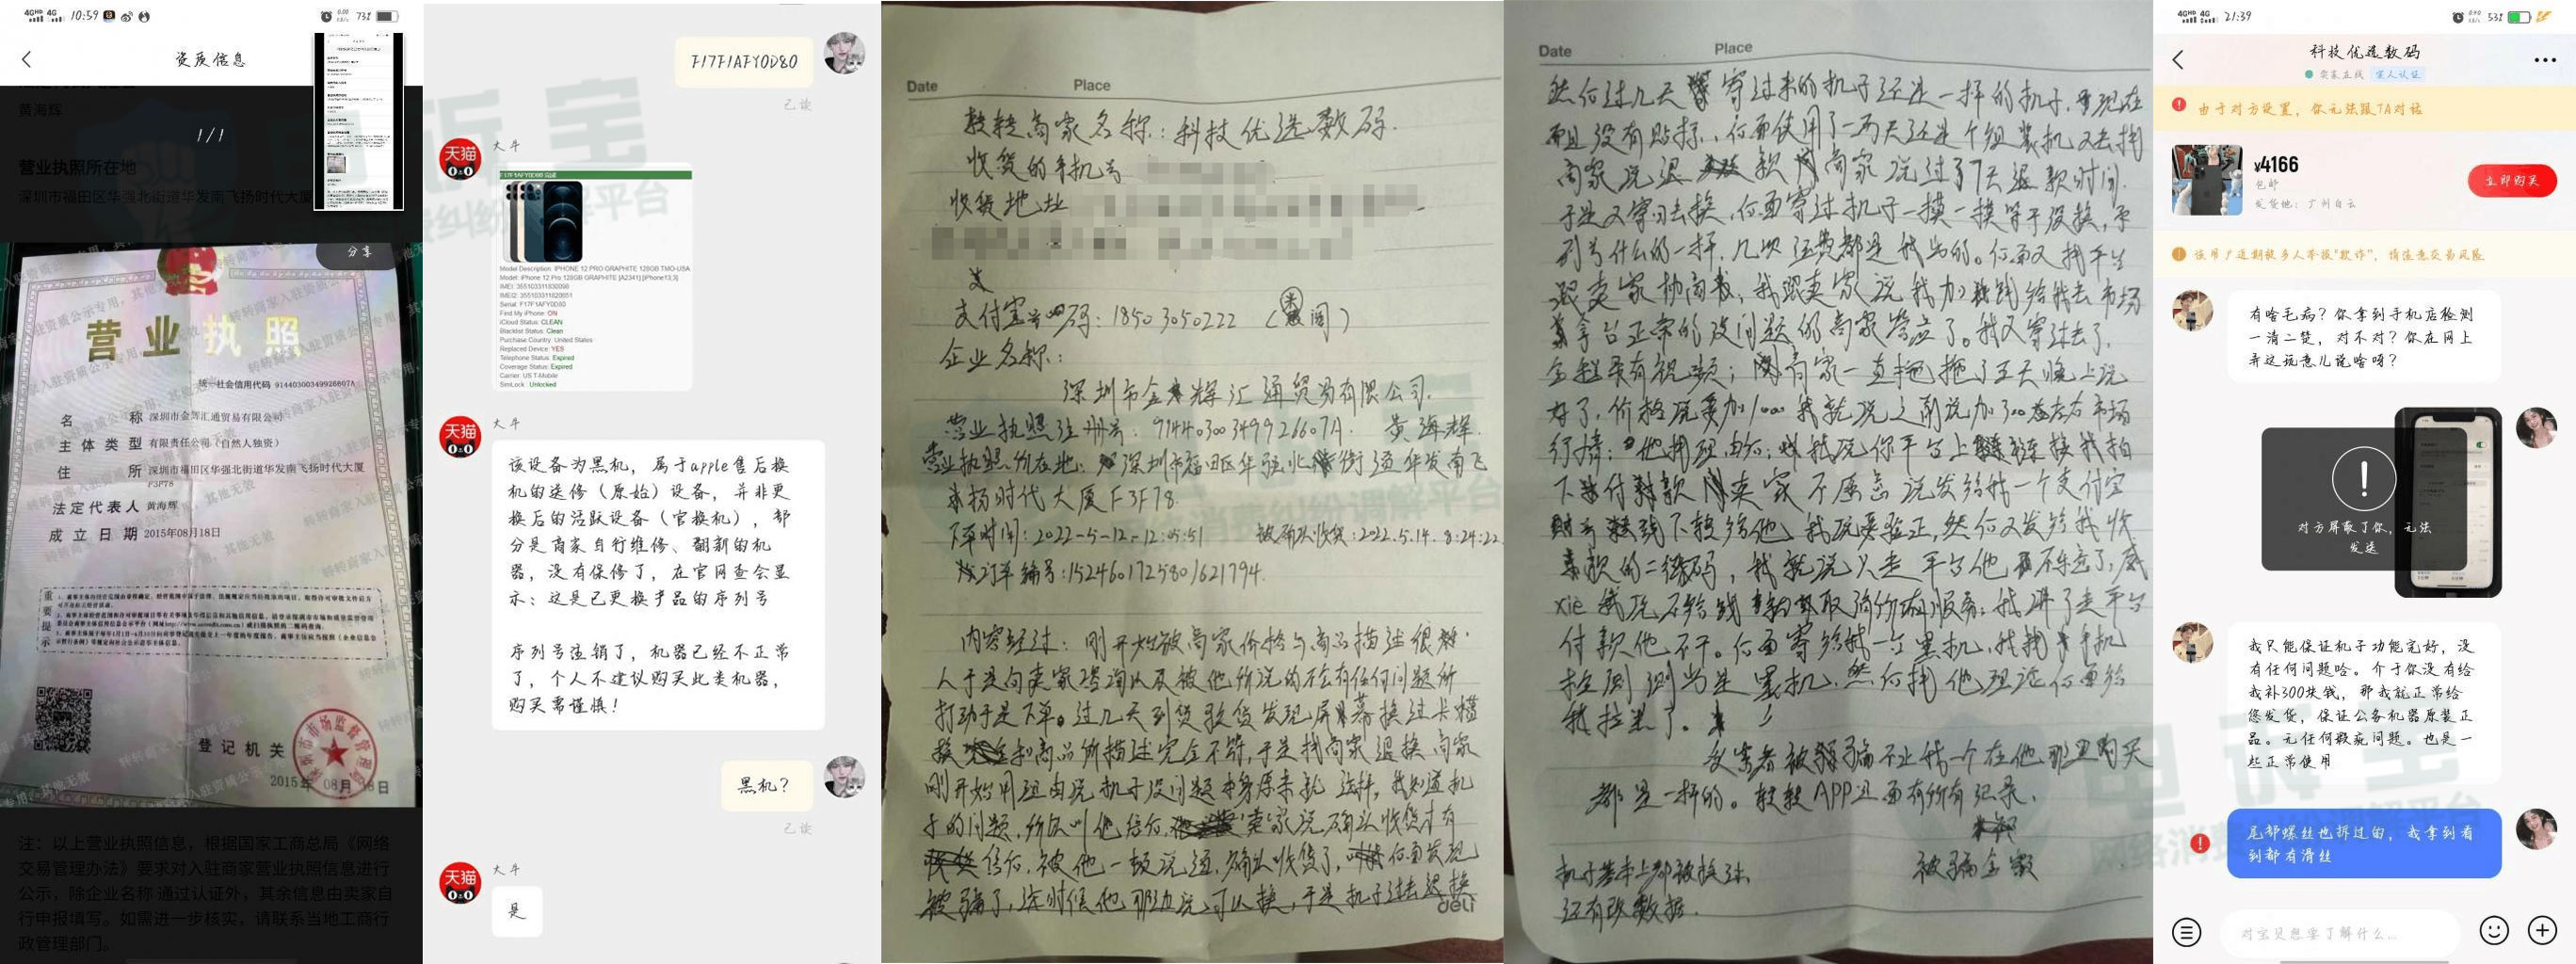 10:59
73%
资质信息
黄海辉
1/1
营业执照所在地
深圳市福田区华强北街道华发南飞扬时代大厦
分享
营业执照
统一社会信用代码 91440300349926607A
名称 深圳市金辉汇通贸易有限公司
主体类型 有限责任公司(自然人独资)
住所 深圳市福田区华强北街道华发南飞扬时代大厦
F3F78
法定代表人 黄海辉
成立日期 2015年08月18日
重要提示
登记机关
2015年 08月 18日
注：以上营业执照信息，根据国家工商总局《网络
交易管理办法》要求对入驻商家营业执照信息进行
公示，除企业名称通过认证外，其余信息由卖家自
行申报填写。如需进一步核实，请联系当地工商行
政管理部门。
F17F1AFY0D80
已读
大牛
天猫
F17F1AFY0D80 完成
Model Description: IPHONE 12 PRO GRAPHITE 128GB TMO-USA
Model: iPhone 12 Pro 128GB GRAPHITE [A2341] [iPhone13,3]
Serial: F17F1AFY0D80
Find My iPhone: ON
iCloud Status: CLEAN
Blacklist Status: Clean
Purchase Country: United States
Replaced Device: YES
Telephone Status: Expired
Coverage Status: Expired
Carrier: US T-Mobile
SimLock: Unlocked
大牛
天猫
该设备为黑机，属于apple售后换
机的送修（原始）设备，并非更
换后的活跃设备（官换机），部
分是商家自行维修、翻新的机
器，没有保修了，在官网查会显
示：这是已更换产品的序列号
序列号注销了，机器已经不正常
了，个人不建议购买此类机器，
购买需谨慎！
黑机？
已读
大牛
天猫
是
Date Place
转转商家名称：科技优选数码.
收货的手机号
收货地址
支付宝号码：18503050222
企业名称：
深圳市金辉汇通贸易有限公司.
营业执照注册号：91440300349926607A. 黄海辉.
营业执照所在地：深圳市福田区华强北街道华发南飞
扬时代大厦F3F78.
下单时间：2022-5-12-12:05:51 被确认收货：2022.5.14.8:24:22
订单编号：1524601725801621794.
内容经过：刚开始被商家价格与商品描述很
人于是向卖家咨询以及被他所说的不会有任何问题所
打动于是下单。过几天到货验货发现屏幕换过卡槽
换和商品所描述完全不符，于是找商家退换商家
刚开始用理由说机子没问题本身原来就这样，我知道机
子的问题，所以叫他赔付，卖家说确认收货才有
赔付，被他一顿说道，确认收货了，后面发现
被骗了，这时候他那边说可以换，于是机子过去退换
deli
Date Place
然后过几天寄过来的机子还是一样的机子，现在
而且没有贴标，后面使用了一两天还是个组装机又去找
商家说退款商家说过了7天退款时间.
于是又寄回去换，后面寄过机子一模一样等于没换，序
列号什么的一样，几次运费都是我出的。后面又找平台
跟卖家协商，我跟卖家说我加钱给我去市场
拿台正常的没问题的商家答应了。我又寄过去了.
全程录有视频；商家一直拖拖了五天晚上说
好了，价格说要加1000我就说之前说加300左右市场
行情；他找理由；我说你平台上链连接我拍
下付款卖家不愿意说发给我一个支付宝
线下转给他，我说要验证，然后又发给我收
款的二维码，我就说只走平台他不乐意了，威
xie我说不给钱取消所有服务；我讲了走平台
付款他不干。后面寄给我一台黑机，我找手机
检测测出是黑机，然后找他理论后面给
我拉黑了。
受害者被骗不止我一个在他那里购买
都是一样的。转转APP里面有所有记录.
机子基本上都被换过.
还有改数据.
被骗全家
21:39
53%
科技优选数码
卖家在线 实人认证
由于对方设置，你无法跟TA对话
¥4166
包邮
发货地：广州白云
立即购买
该用户近期被多人举报"欺诈"，请注意交易风险
有啥毛病？你拿到手机店检测
一清二楚，对不对？你在网上
弄这玩意儿说啥呀？
对方屏蔽了你，无法
发送
我只能保证机子功能完好，没
有任何问题哈。介于你没有给
我补300块钱，那我就正常给
您发货，保证公务机器原装正
品。无任何瑕疵问题。也是一
些正常使用
尾部螺丝也拆过的，我拿到看
到都有滑丝
对宝贝想要了解什么...